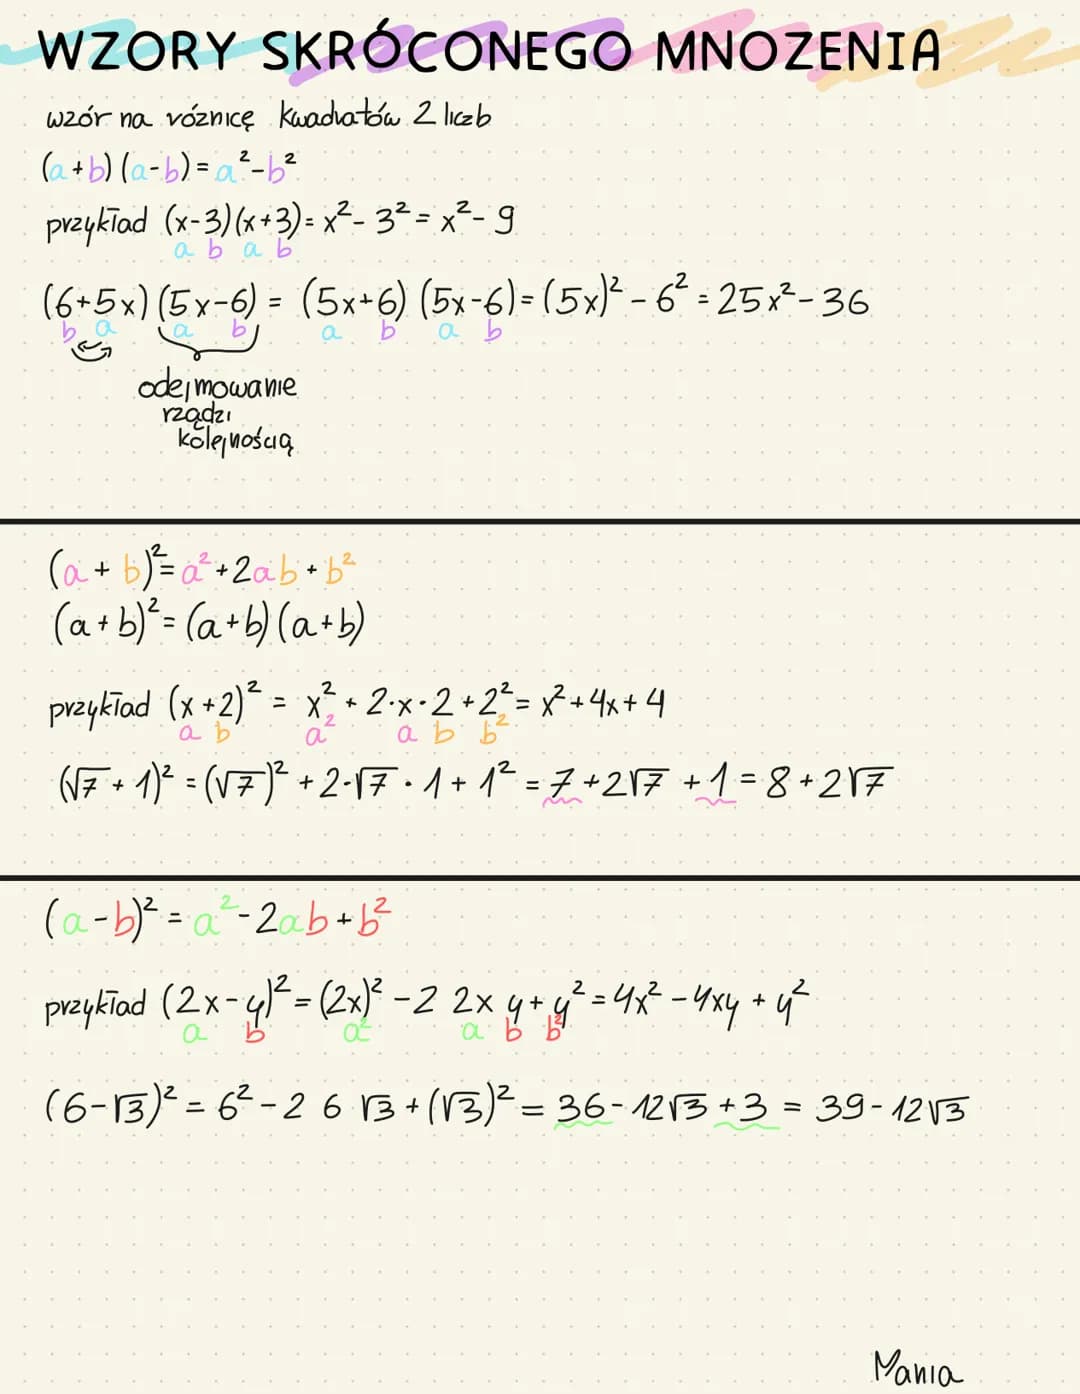 WZORY SKRÓCONEGO MNOZENIA
wzór na różnicę kwadratów 2 liczb
(a+b)(a-b)=a²-b²
przykład (x-3)(x+3)=x²-3²=x²-9
a b a b
(6+5x)(5x-6)=(5x+6)(5x-6)=(5x)²-6²=25x²-36
b a a b a b a b
odejmowanie
rządzi
kolejnością
(a+b)²=a²+2ab+b²
(a+b)²=(a+b)(a+b)
przykład (x+2)²=x²+2·x·2+2²=x²+4x+4
a b a² a b b²
(√7+1)²=(√7)²+2·√7·1+1²=7+2√7+1=8+2√7
(a-b)²=a²-2ab+b²
przykład (2x-y)²=(2x)²-2 2x y+y²=4x²-4xy+y²
a b a² a b b²
(6-√3)²=6²-2 6 √3+(√3)²=36-12√3+3=39-12√3
Mania